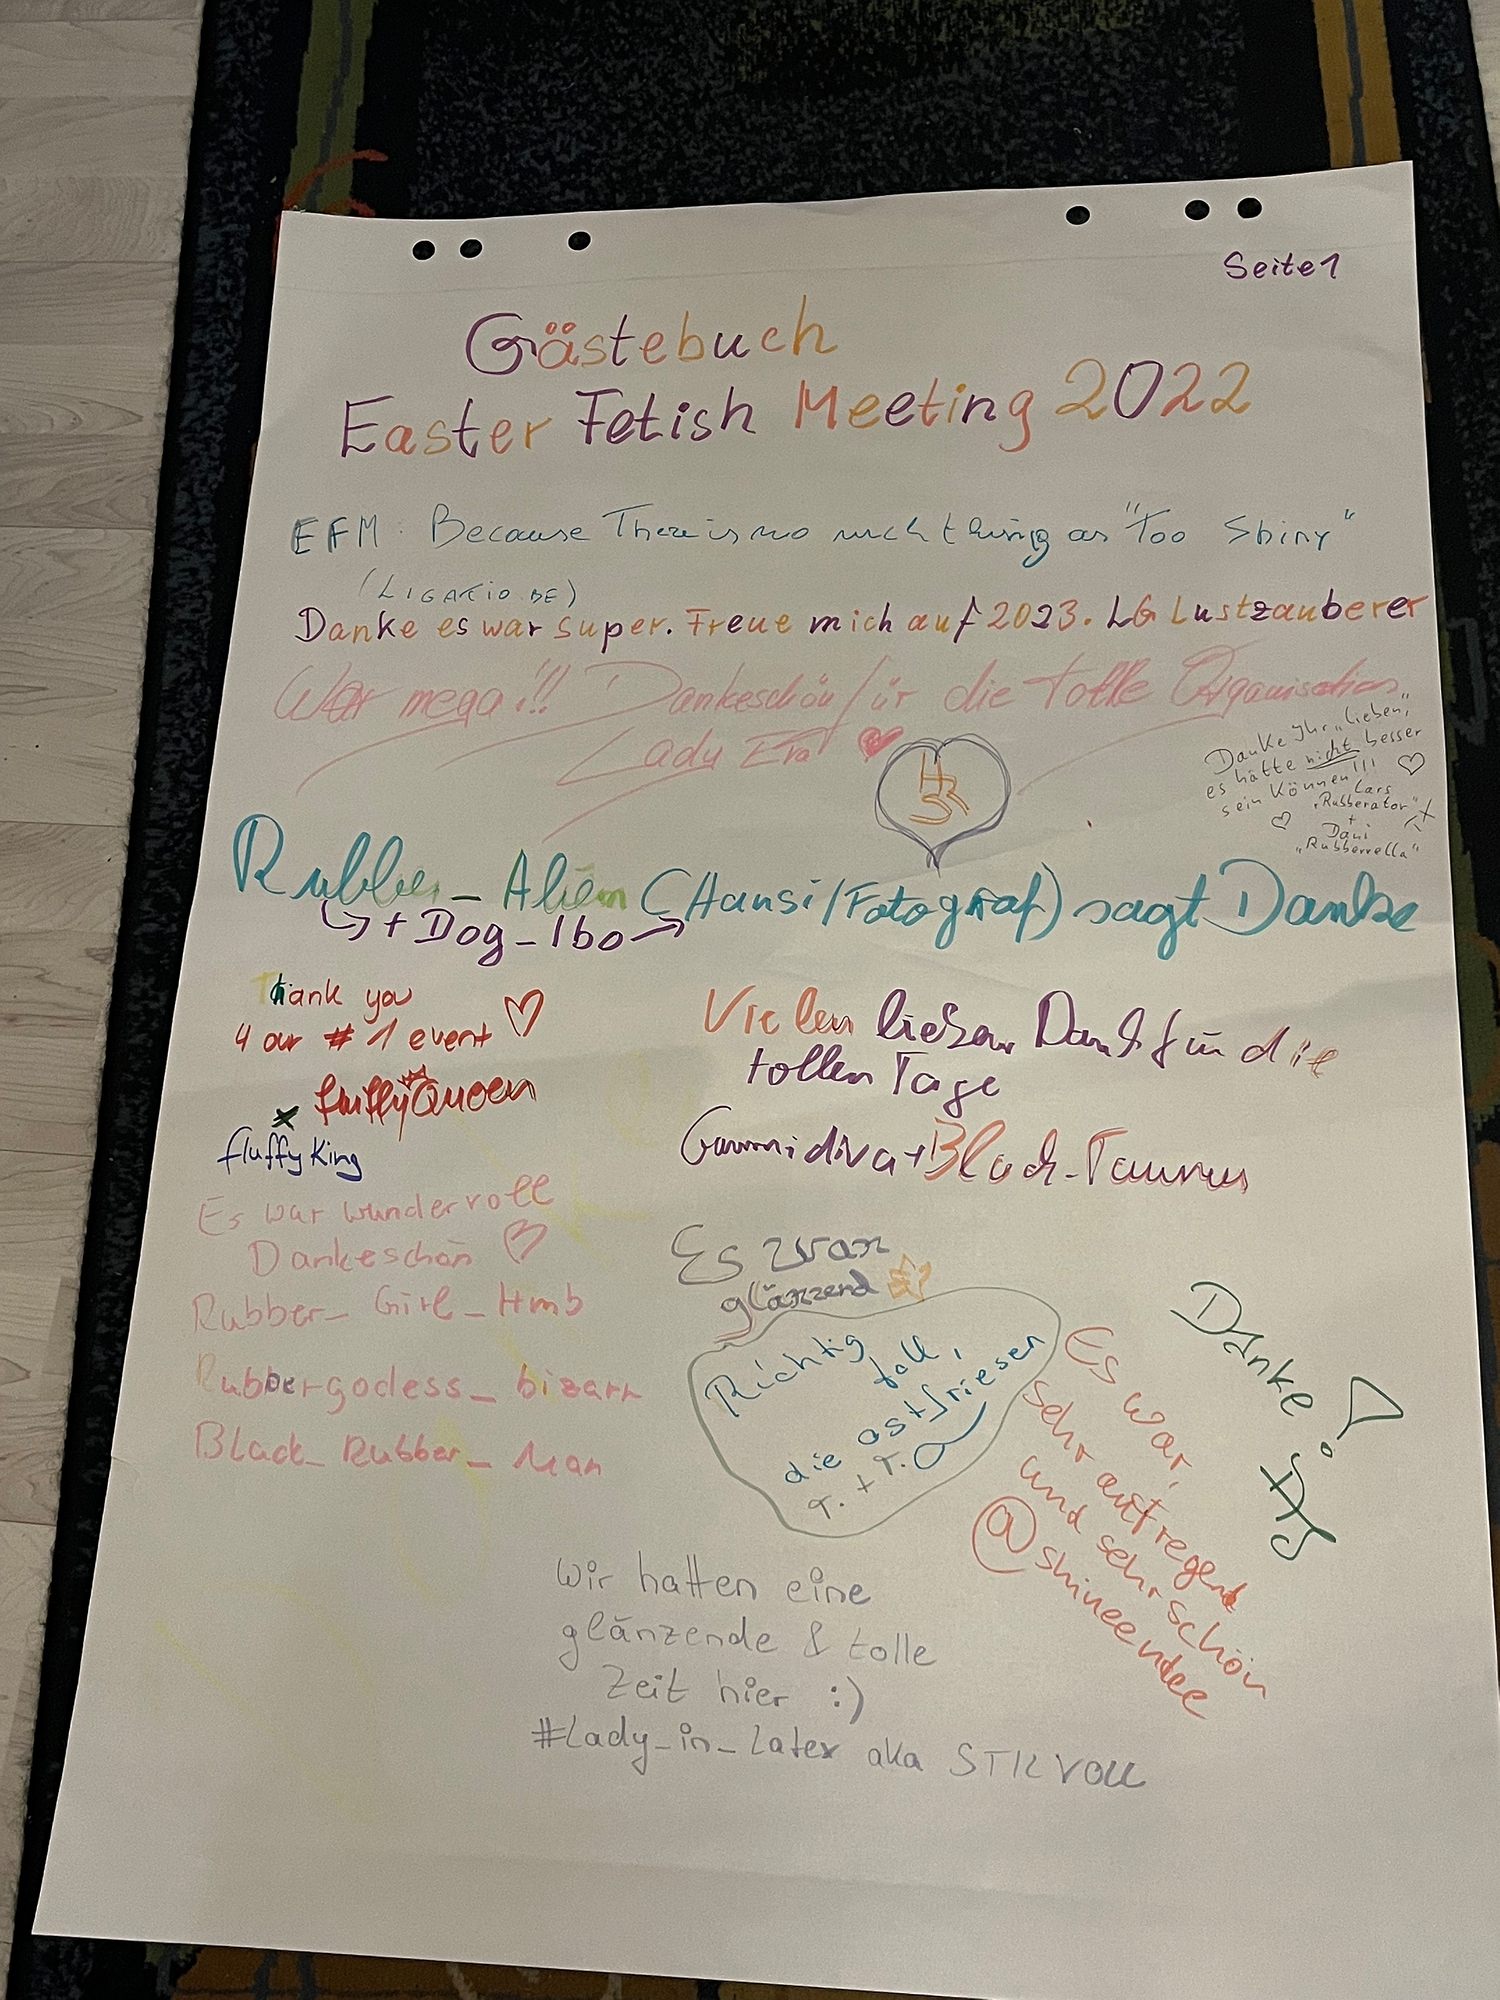 Seite 1
Gästebuch
Easter Fetish Meeting 2022
EFM: Because There is no such thing as "Too Shiny"
(LIGATIO.DE)
Danke es war super. Freue mich auf 2023. LG Lustzauberer
War mega!!! Dankeschön für die tolle Organisation
Lady Era
Danke Ihr "lieben,"
es hätte nicht besser
sein können!!!
Lars
"Rubberator"
+
Dani
"Rubberella"
Rubber_Alien (Hansi/Fotograf) sagt Danke
+ Dog_Ibo
Thank you
4 our #1 event
fluffyQueen
x
fluffyKing
Vielen lieben Dank für die
tollen Tage
Gummidiva + Black_Taurus
Es war wundervoll
Dankeschön
Rubber_Girl_Hmb
Rubbergodess_bizarr
Black_Rubber_Man
Es war
glänzend
Richtig
toll,
die ostfriesen
T. + T.
Es war,
sehr aufregend
und sehr schön
@shineendee
Danke!
Wir hatten eine
glänzende & tolle
Zeit hier :)
#Lady_in_Latex aka STILVOLL